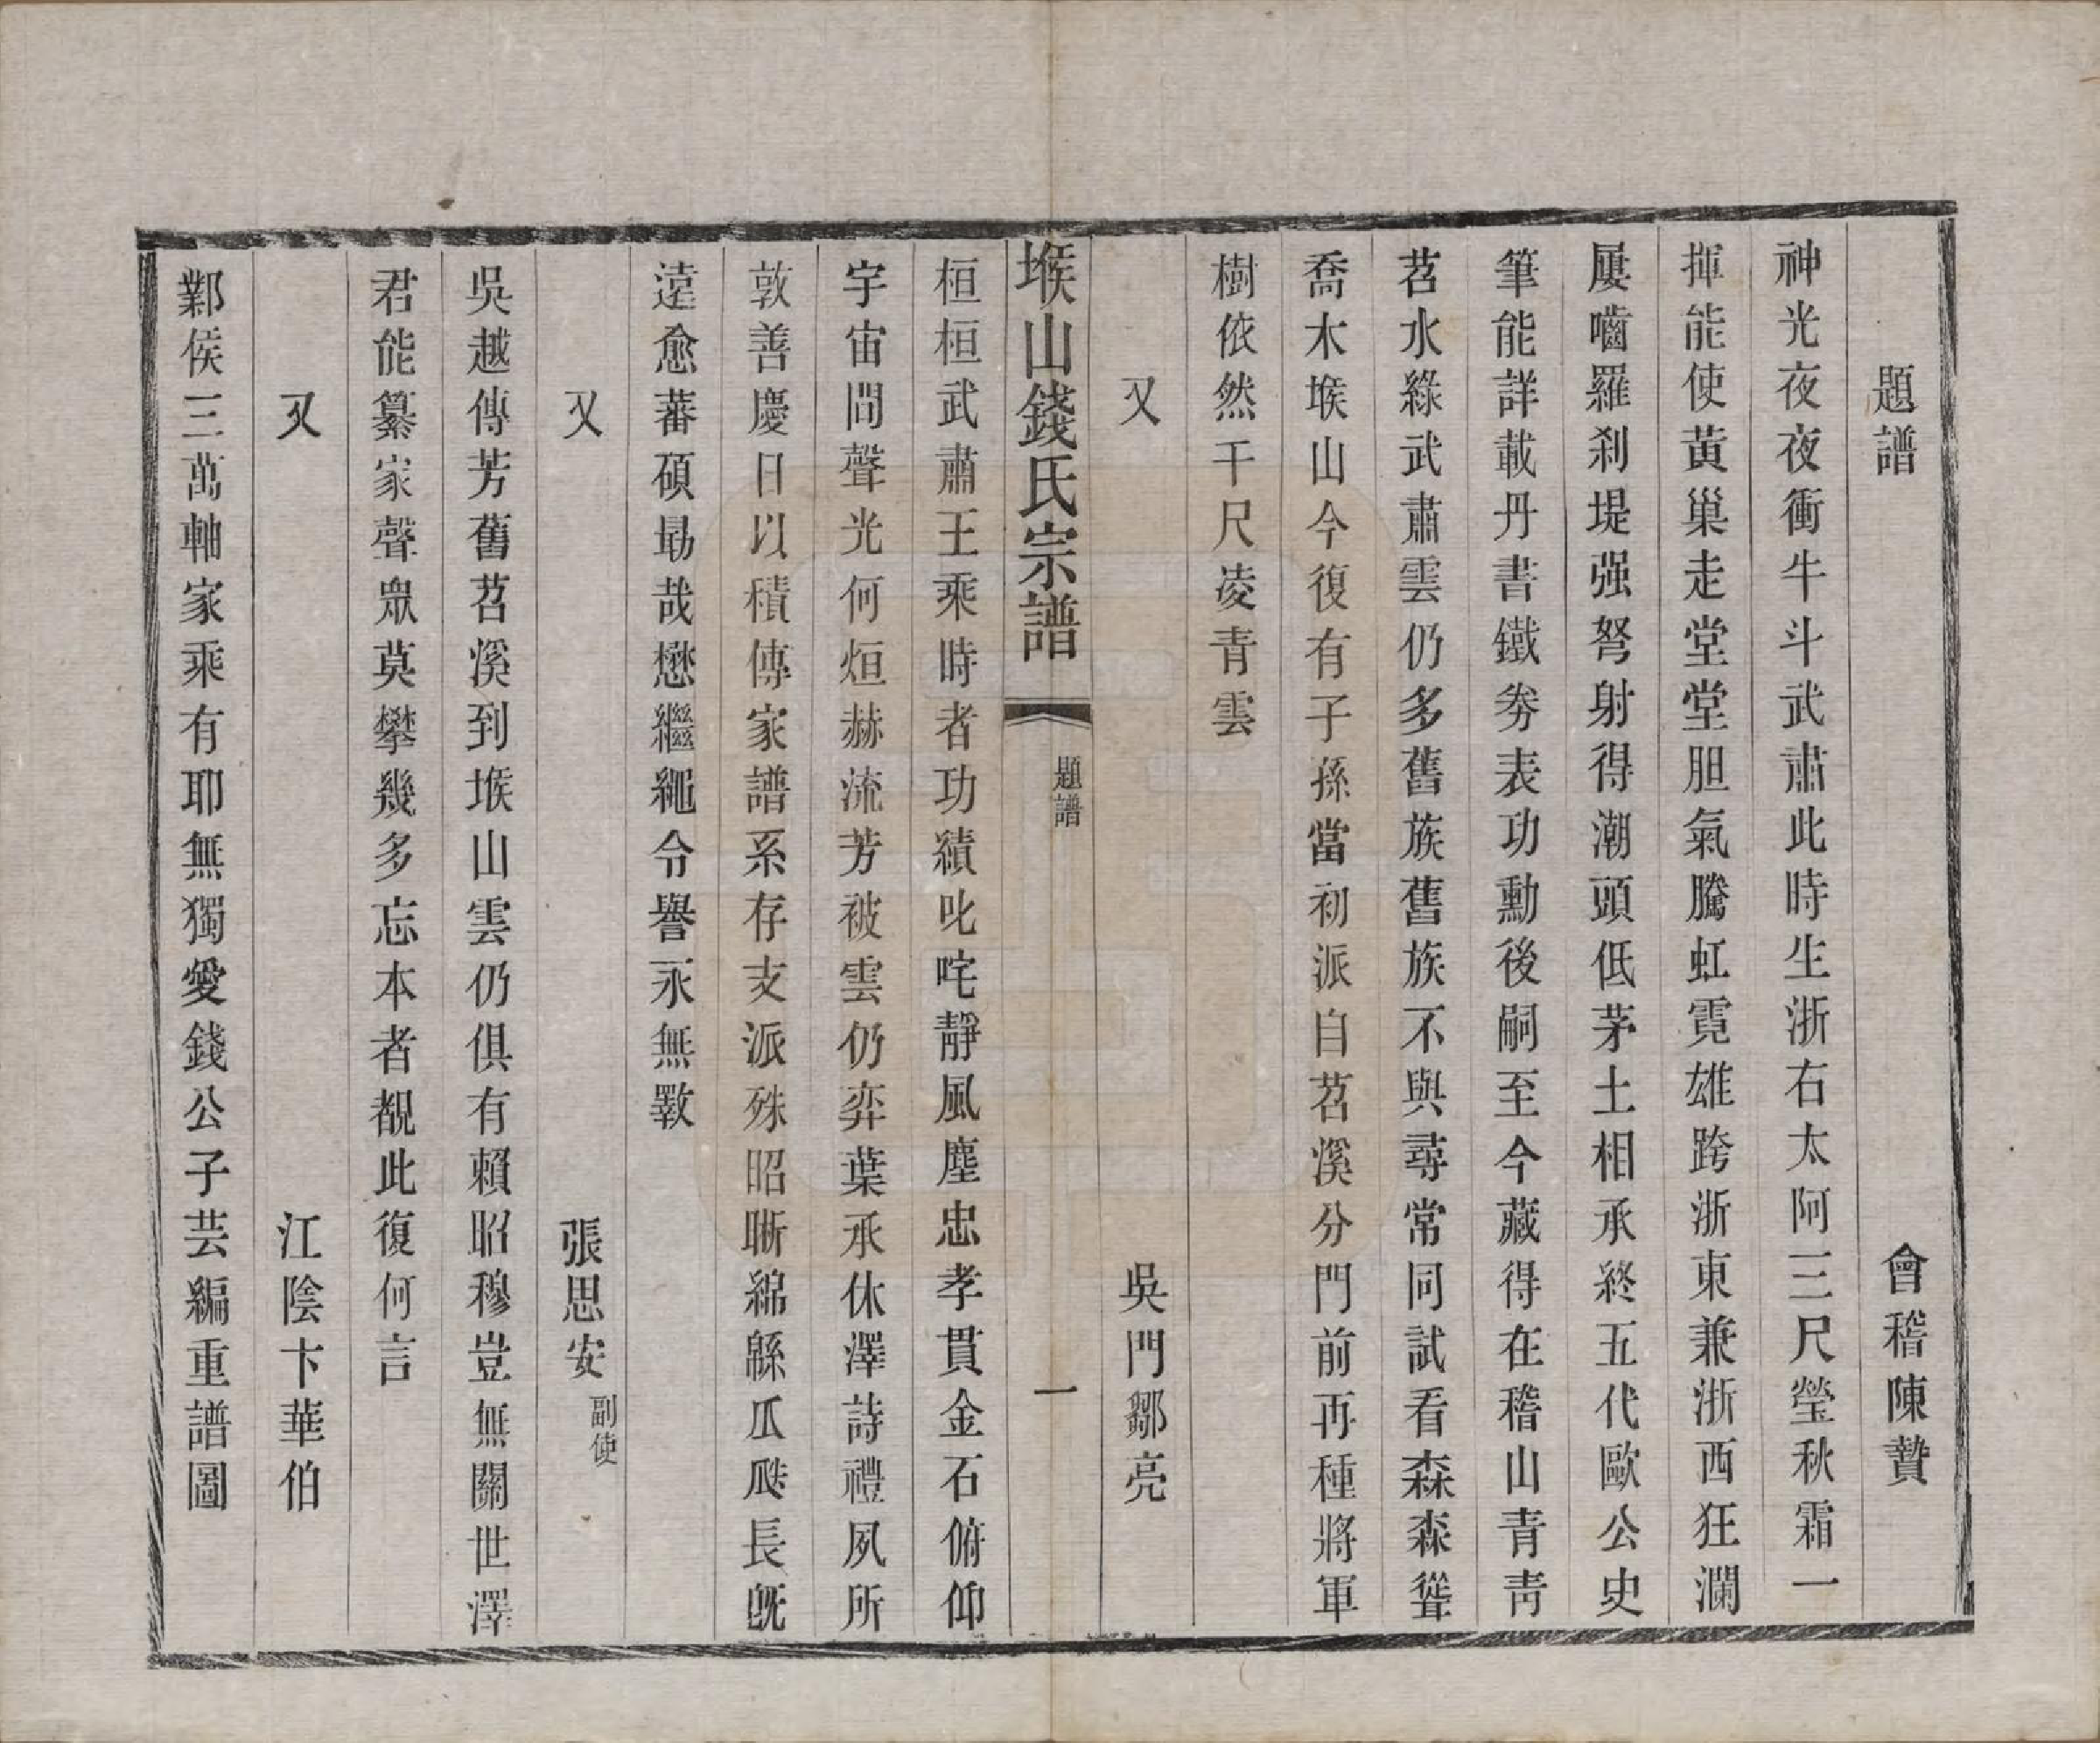 題譜　會稽陳贄
神光夜夜衝牛斗武肅此時生浙右太阿三尺瑩秋霜一
揮能使黃巢走堂堂胆氣騰虹霓雄跨浙東兼浙西狂瀾
屢嚙羅刹堤强弩射得潮頭低茅土相承終五代歐公史
筆能詳載丹書鐵劵表功勳後嗣至今藏得在稽山青青
苕水綠武肅雲仍多舊族舊族不與尋常同試看森森聳
喬木堠山今復有子孫當初派自苕溪分門前再種將軍
樹依然干尺凌青雲
又　吳門鄒亮
堠山錢氏宗譜　題譜　一
桓桓武肅王乘時者功績叱咤靜風塵忠孝貫金石俯仰
宇宙間聲光何烜赫流芳被雲仍弈葉承休澤詩禮夙所
敦善慶日以積傳家譜系存支派殊昭晣綿緜瓜瓞長旣
遠愈蕃碩勗哉懋繼繩令譽永無斁
又　張思安副使
吳越傳芳舊苕溪到堠山雲仍俱有賴昭穆豈無關世澤
君能纂家聲眾莫攀幾多忘本者覩此復何言
又　江陰卞華伯
鄴侯三萬軸家乘有耶無獨愛錢公子芸編重譜圖